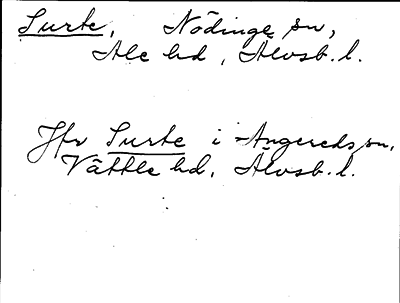 Surte, Nödinge sn,
Ale hd, Älvsb. l.
Jfr Surte i Angereds sn,
Vättle hd, Älvsb. l.